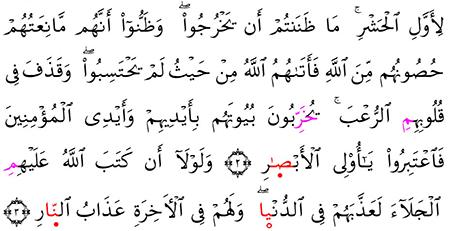 لِأَوَّلِ الْحَشْرِ ۚ مَا ظَنَنتُمْ أَن يَخْرُجُوا۟ ۖ وَظَنُّوٓا۟ أَنَّهُم مَّانِعَتُهُمْ
حُصُونُهُم مِّنَ اللَّهِ فَأَتَىٰهُمُ اللَّهُ مِنْ حَيْثُ لَمْ يَحْتَسِبُوا۟ ۖ وَقَذَفَ فِى
قُلُوبِهِمِ الرُّعْبَ ۚ يُخَرِّبُونَ بُيُوتَهُم بِأَيْدِيهِمْ وَأَيْدِى الْمُؤْمِنِينَ
فَاعْتَبِرُوا۟ يَٰٓأُو۟لِى الْأَبْصَٰرِ ﴿٢﴾ وَلَوْلَآ أَن كَتَبَ اللَّهُ عَلَيْهِمِ
الْجَلَآءَ لَعَذَّبَهُمْ فِى الدُّنْيَا ۖ وَلَهُمْ فِى الْـَٔاخِرَةِ عَذَابُ النَّارِ ﴿٣﴾